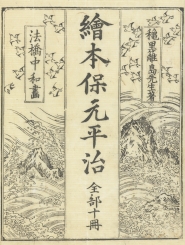 秋里籬島先生著
繪本保元平治 全部十冊
法橋中和畫